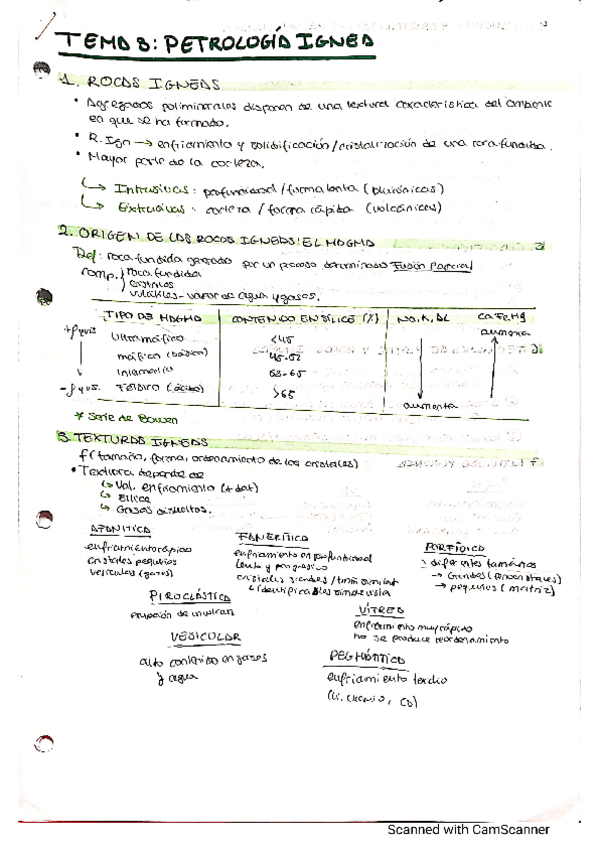 TEMA 3: PETROLOGÍA IGNEA
1. ROCAS IGNEAS
• Agregados poliminerales disponen de una textura característica del ambiente
en que se ha formado.
• R. Ign → enfriamiento y solidificación/cristalización de una roca fundida.
• Mayor parte de la corteza.
↳ Intrusivas: profundidad / forma lenta (plutónicas)
↳ Extrusivas: corteza / forma rápida (volcánicas)
2. ORIGEN DE LAS ROCAS IGNEAS: EL MAGMA
Def: roca fundida generado por un proceso determinado Fusión Parcial
comp. roca fundida
cristales
volátiles - vapor de agua y gases.
TIPO DE MAGMA CONTENIDO EN SÍLICE (%) Na, K, AL Ca, Fe, Mg
Ultramáfico <45 aumenta
máfico (básico) 45-52
Intermedio 53-65
Félsico (ácido) >65
aumenta
* Serie de Bowen
3. TEXTURAS IGNEAS
f( tamaño, forma, ordenamiento de los cristales)
• Textura depende de
↳ Vel. enfriamiento
↳ Sílice
↳ Gases disueltos.
AFANITICA FANERÍTICA PORFÍDICA
enfriamiento rápido
cristales pequeños
vesículas (gases)
enfriamiento en profundidad
lento y progresivo
cristales grandes
identificables
diferentes tamaños
→ Grandes (fenocristales)
→ pequeños (matriz)
PIROCLÁSTICA
erupción de un volcan
VÍTREA
enfriamiento muy rápido
no se produce reordenamiento
VESICULAR
alto contenido en gases
y agua
PEGMATÍTICA
enfriamiento tardío
Scanned with CamScanner